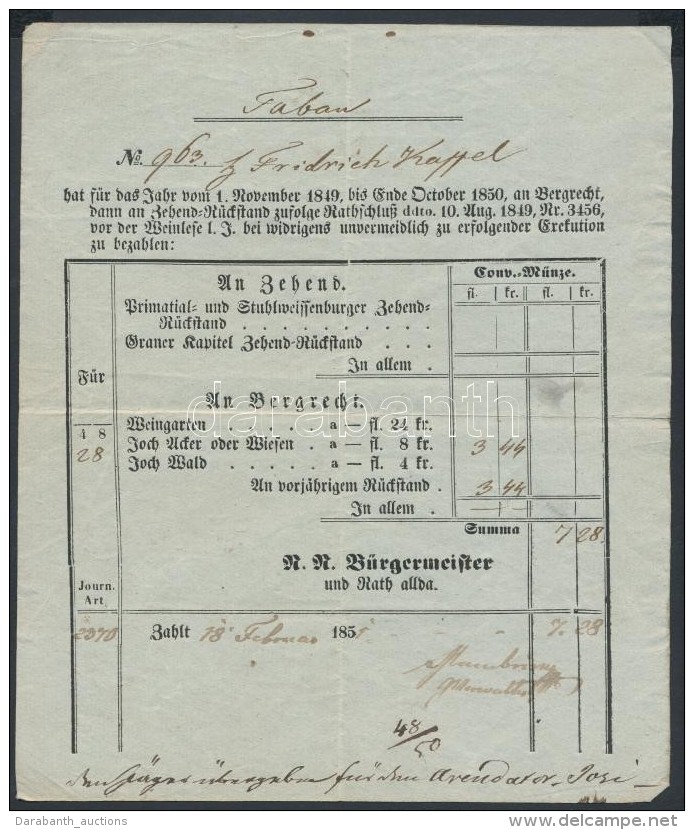 Taban
No. 963. Fridrich Kappel
hat für das Jahr vom 1. November 1849, bis Ende October 1850, an Bergrecht,
dann an Zehend-Rückstand zufolge Rathschluß ddto. 10. Aug. 1849, Nr. 3456,
vor der Weinlese l. J. bei widrigens unvermeidlich zu erfolgender Exekution
zu bezahlen:
An Zehend.
Conv.-Münze.
fl. kr. fl. kr.
Primatial- und Stuhlweissenburger Zehend-
Rückstand . . . . . . . . . .
Graner Kapitel Zehend-Rückstand . . .
In allem .
Für
An Bergrecht.
Weingarten . . . . a — fl. 24 kr.
4 8
Joch Acker oder Wiesen . a — fl. 8 kr. 3 44
28
Joch Wald . . . . . a — fl. 4 kr.
An vorjährigem Rückstand . 3 44
In allem . .
Summa 7 28.
N. N. Bürgermeister
und Rath allda.
Journ.
Art.
2370 Zahlt 18 Februar 1851 7. 28
48/50
den Jäger übergeben für den Arendator
darabanth
Darabanth_auctions
delcampe.net